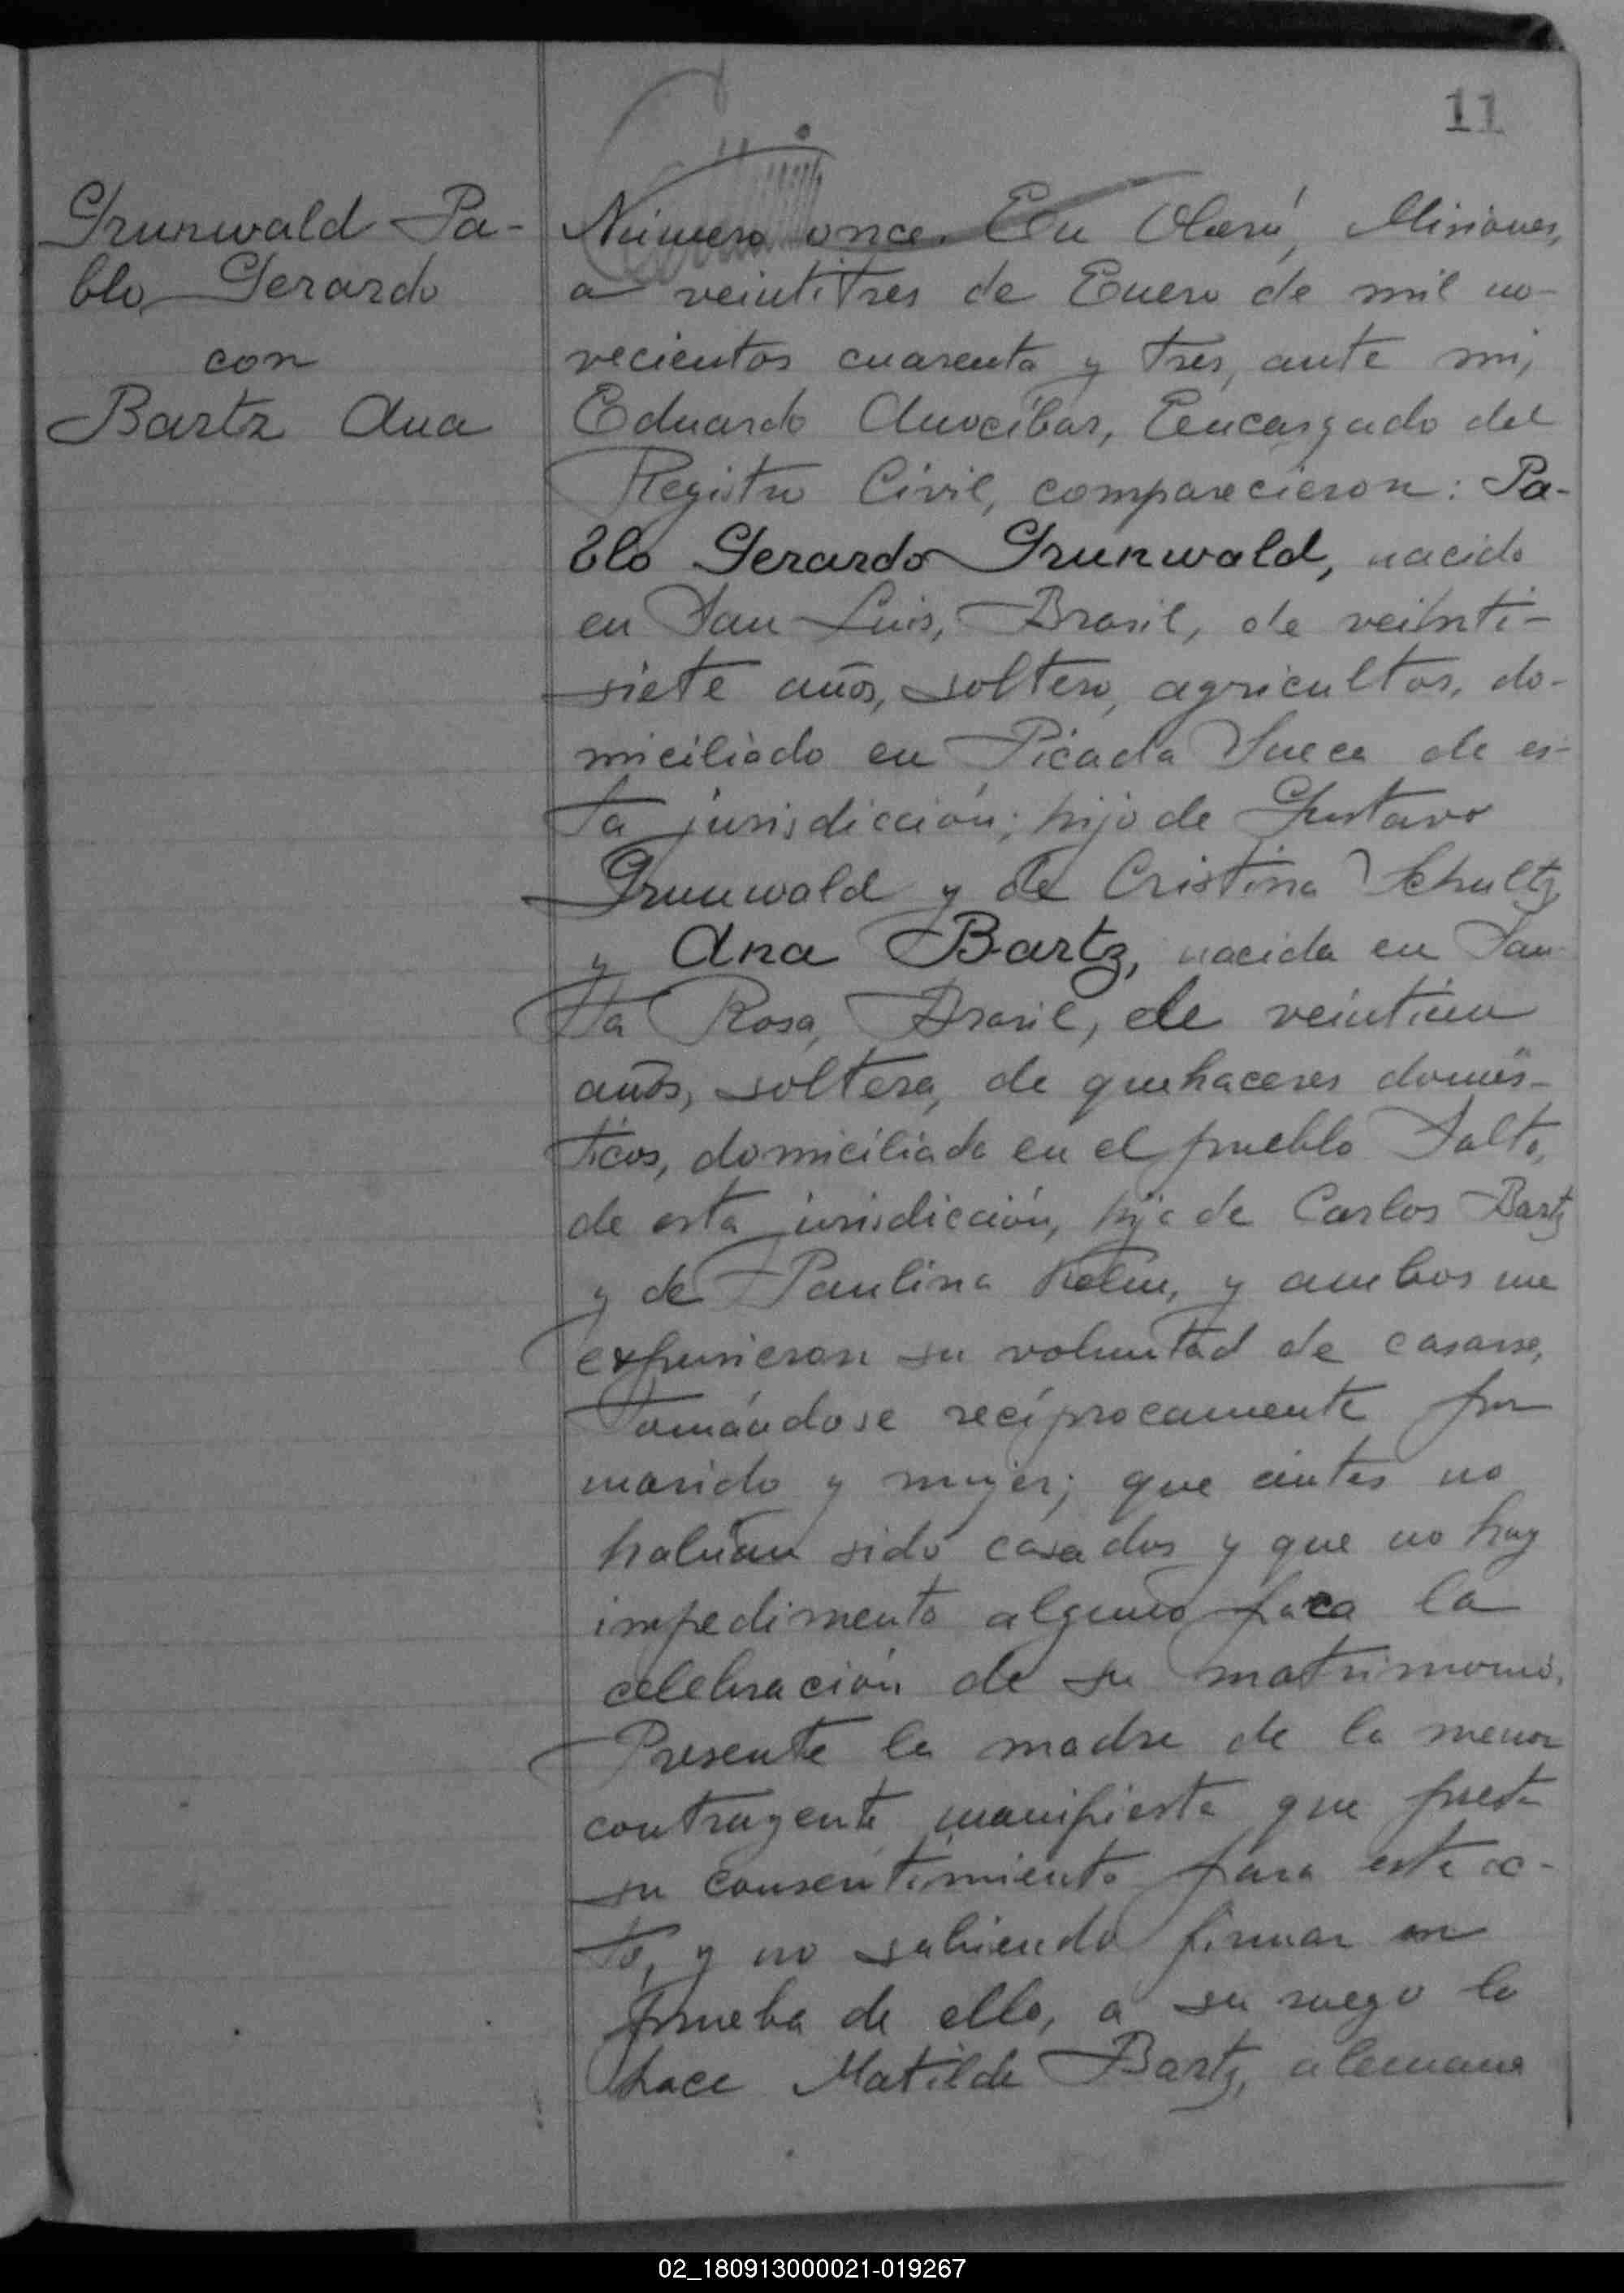 11
Grunwald Pa-
blo Gerardo
con
Bartz Ana
Número once. En Oberá, Misiones,
a veintitres de Enero de mil no-
vecientos cuarenta y tres, ante mi,
Eduardo Anocíbar, Encargado del
Registro Civil, comparecieron: Pa-
blo Gerardo Grunwald, nacido
en San Luis, Brasil, de veinti-
siete años, soltero, agricultor, do-
miciliado en Picada Sueca de es-
ta jurisdicción; hijo de Gustavo
Grunwald y de Cristina Schultz
y Ana Bartz, nacida en San-
ta Rosa, Brasil, de veintiun
años, soltera, de quehaceres domés-
ticos, domiciliada en el pueblo Salto,
de esta jurisdicción, hija de Carlos Bartz
y de Paulina Kelm, y ambos me
expusieron su voluntad de casarse,
tomándose recíprocamente por
marido y mujer; que antes no
habían sido casados y que no hay
impedimento alguno para la
celebración de su matrimonio.
Presente la madre de la menor
contrayente manifiesta que presta
su consentimiento para este ac-
to, y no sabiendo firmar en
prueba de ello, a su ruego lo
hace Matilde Bartz, alemana
02_180913000021-019267